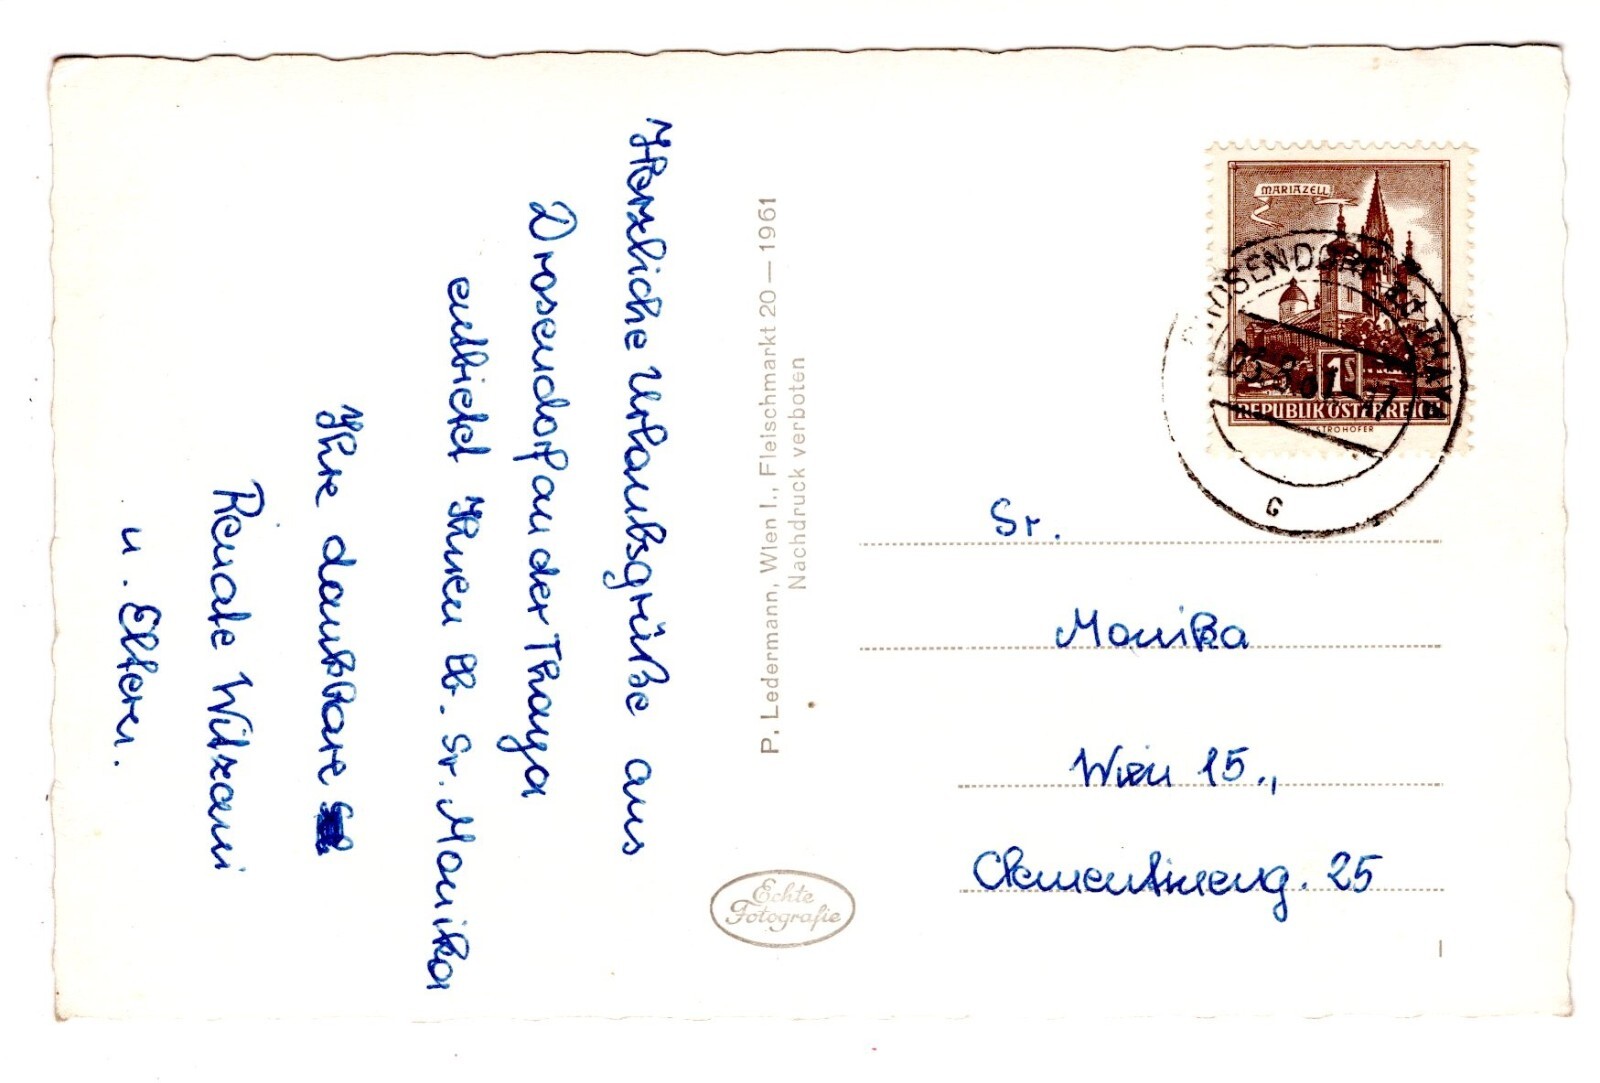 Herzliche Urlaubsgrüße aus
Drosendorf an der Thaya
entbietet Ihnen lb. Sr. Monika
Ihre dankbare
Renate Witzani
u. Eltern.
P. Ledermann, Wien I., Fleischmarkt 20 — 1961
Nachdruck verboten
Echte
Fotografie
MARIAZELL
1S
REPUBLIK ÖSTERREICH
STROHOFER
DROSENDORF
THAYA
G
Sr.
Monika
Wien 15.,
Clementineng. 25
I